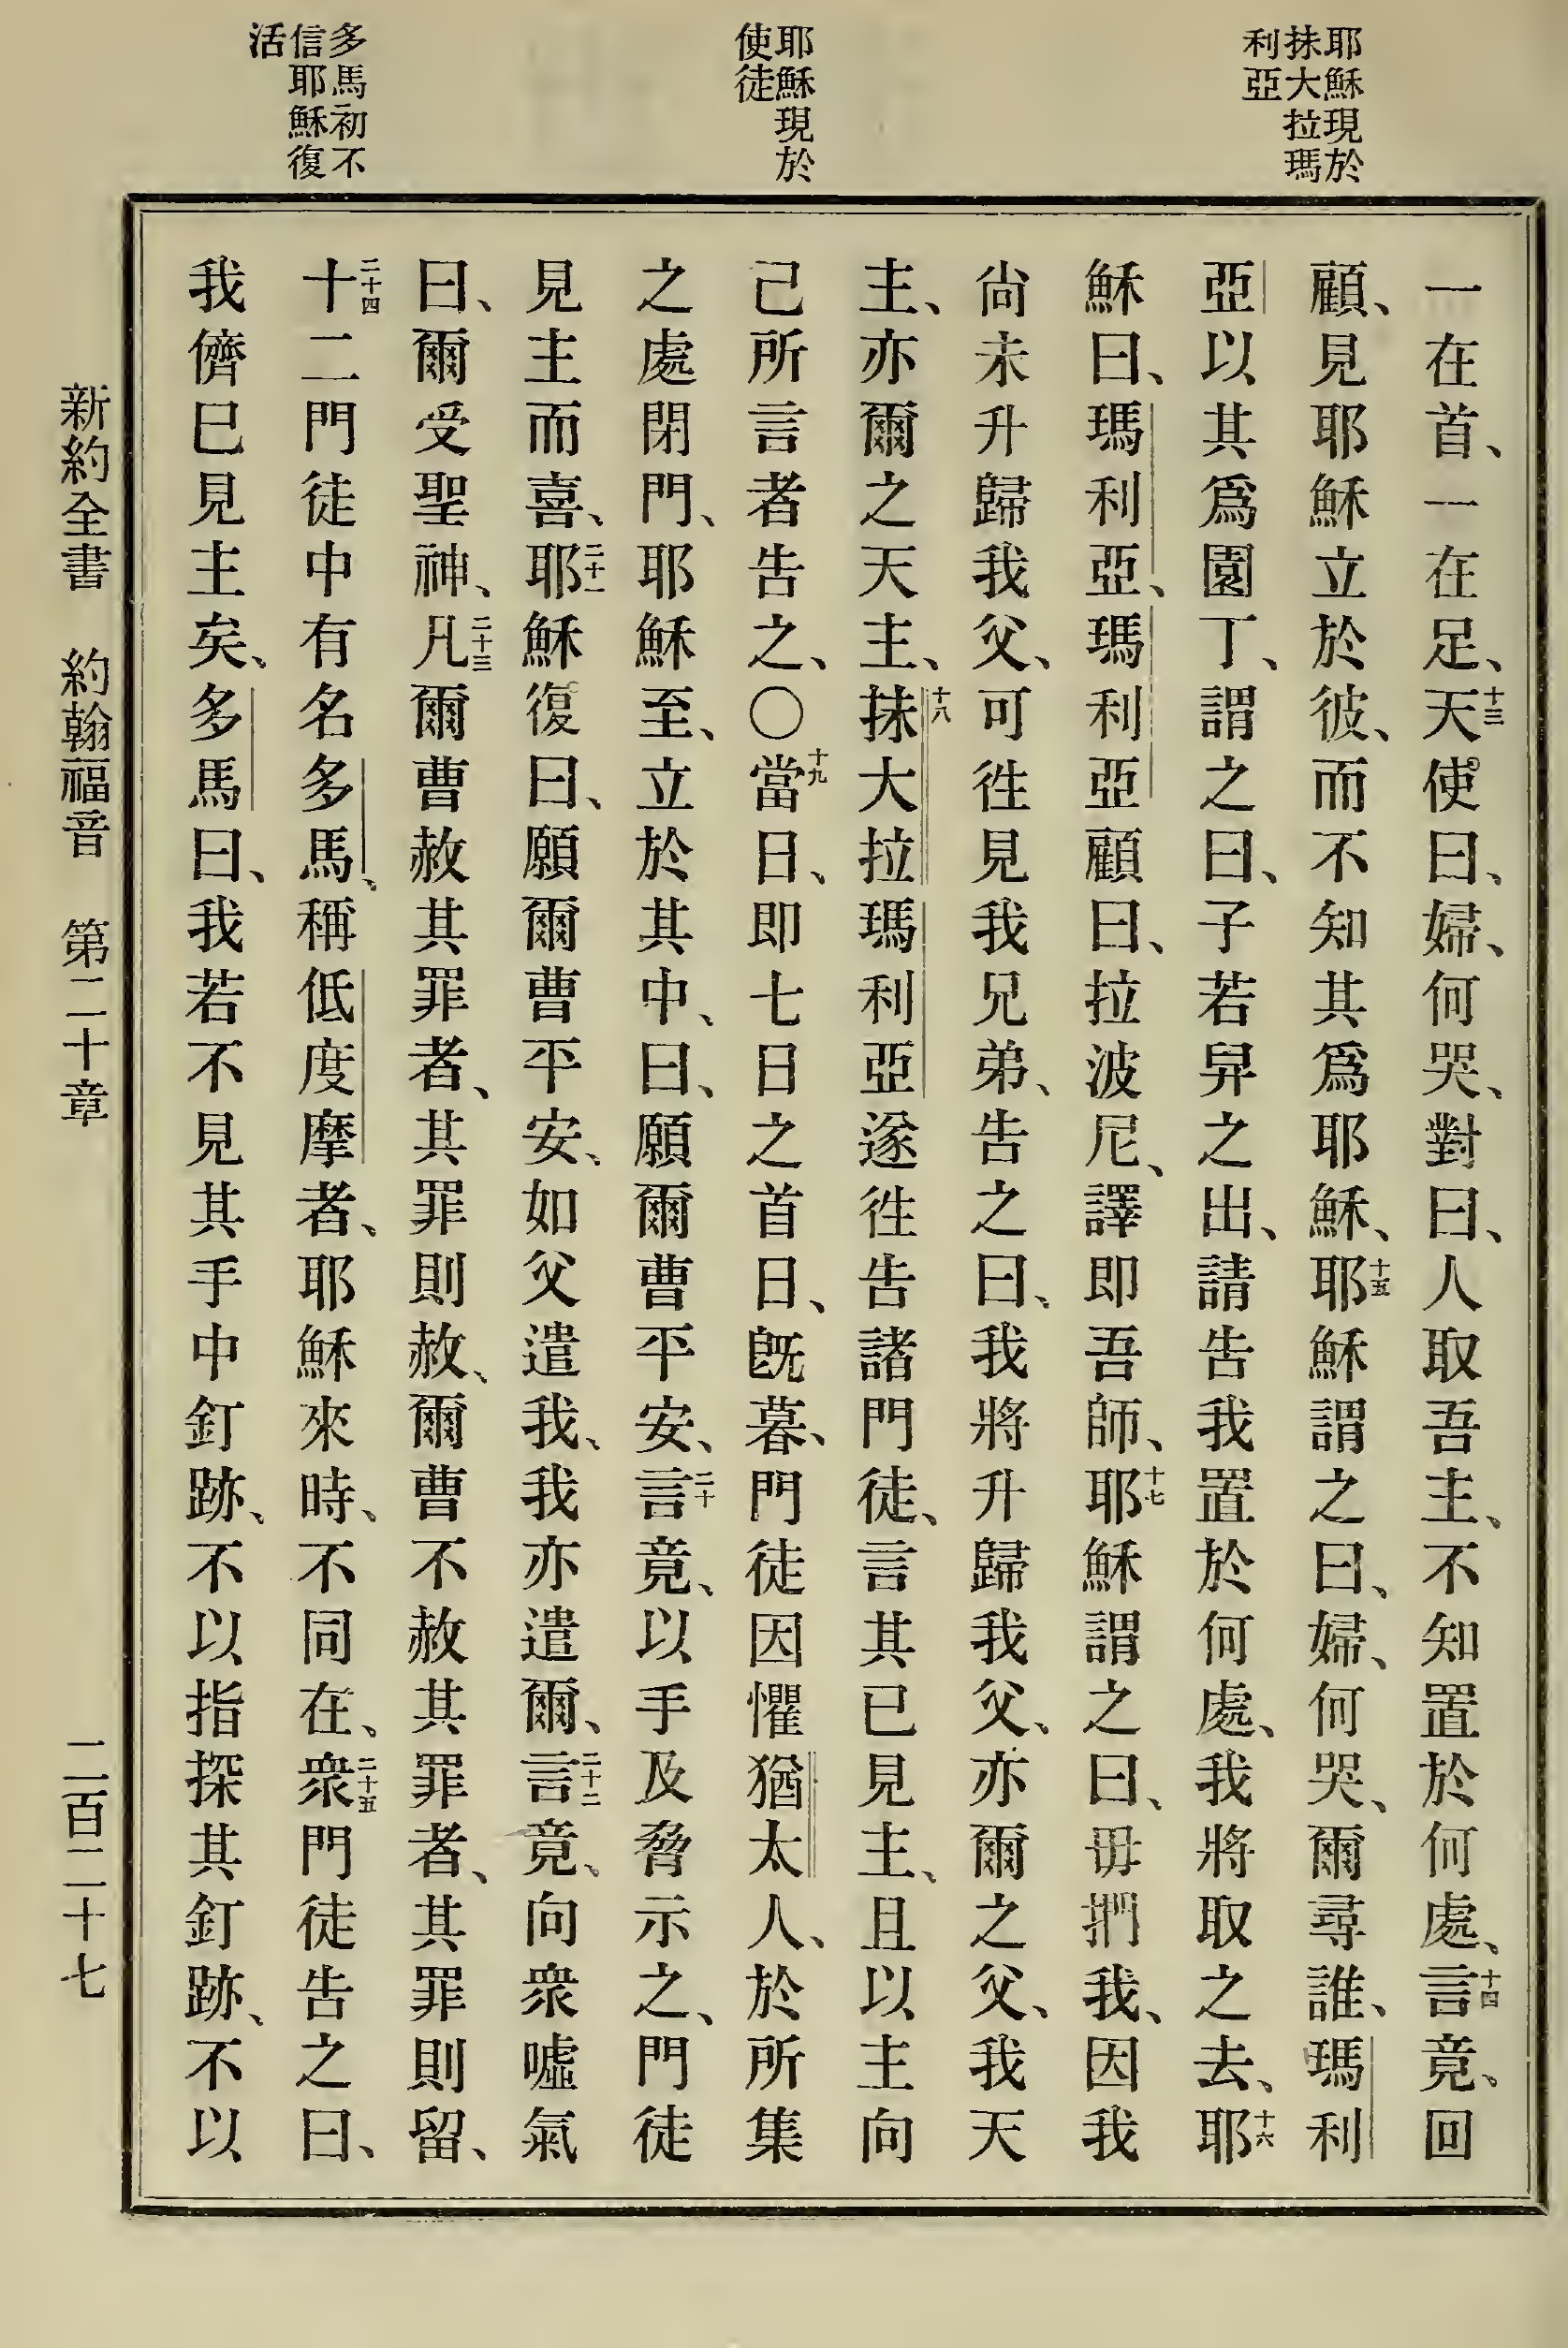 耶穌現於
抹大拉瑪
利亞
耶穌現於
使徒
多馬初不
信耶穌復
活
一在首、一在足、十三天使曰、婦、何哭、對曰、人取吾主、不知置於何處、十四言竟、回
顧、見耶穌立於彼、而不知其爲耶穌、十五耶穌謂之曰、婦、何哭、爾尋誰、瑪利
亞以其爲園丁、謂之曰、子若舁之出、請告我置於何處、我將取之去、十六耶
穌曰、瑪利亞、瑪利亞顧曰、拉波尼、譯即吾師、十七耶穌謂之曰、毋捫我、因我
尙未升歸我父、可徃見我兄弟、告之曰、我將升歸我父、亦爾之父、我天
主、亦爾之天主、十八抹大拉瑪利亞遂徃告諸門徒、言其已見主、且以主向
己所言者告之、〇十九當日、即七日之首日、旣暮、門徒因懼猶太人、於所集
之處閉門、耶穌至、立於其中、曰、願爾曹平安、二十言竟、以手及脅示之、門徒
見主而喜、二十一耶穌復曰、願爾曹平安、如父遣我、我亦遣爾、二十二言竟、向衆噓氣
曰、爾受聖神、二十三凡爾曹赦其罪者、其罪則赦、爾曹不赦其罪者、其罪則留、
二十四十二門徒中有名多馬、稱低度摩者、耶穌來時、不同在、二十五衆門徒告之曰、
我儕巳見主矣、多馬曰、我若不見其手中釘跡、不以指探其釘跡、不以
新約全書 約翰福音 第二十章 二百二十七